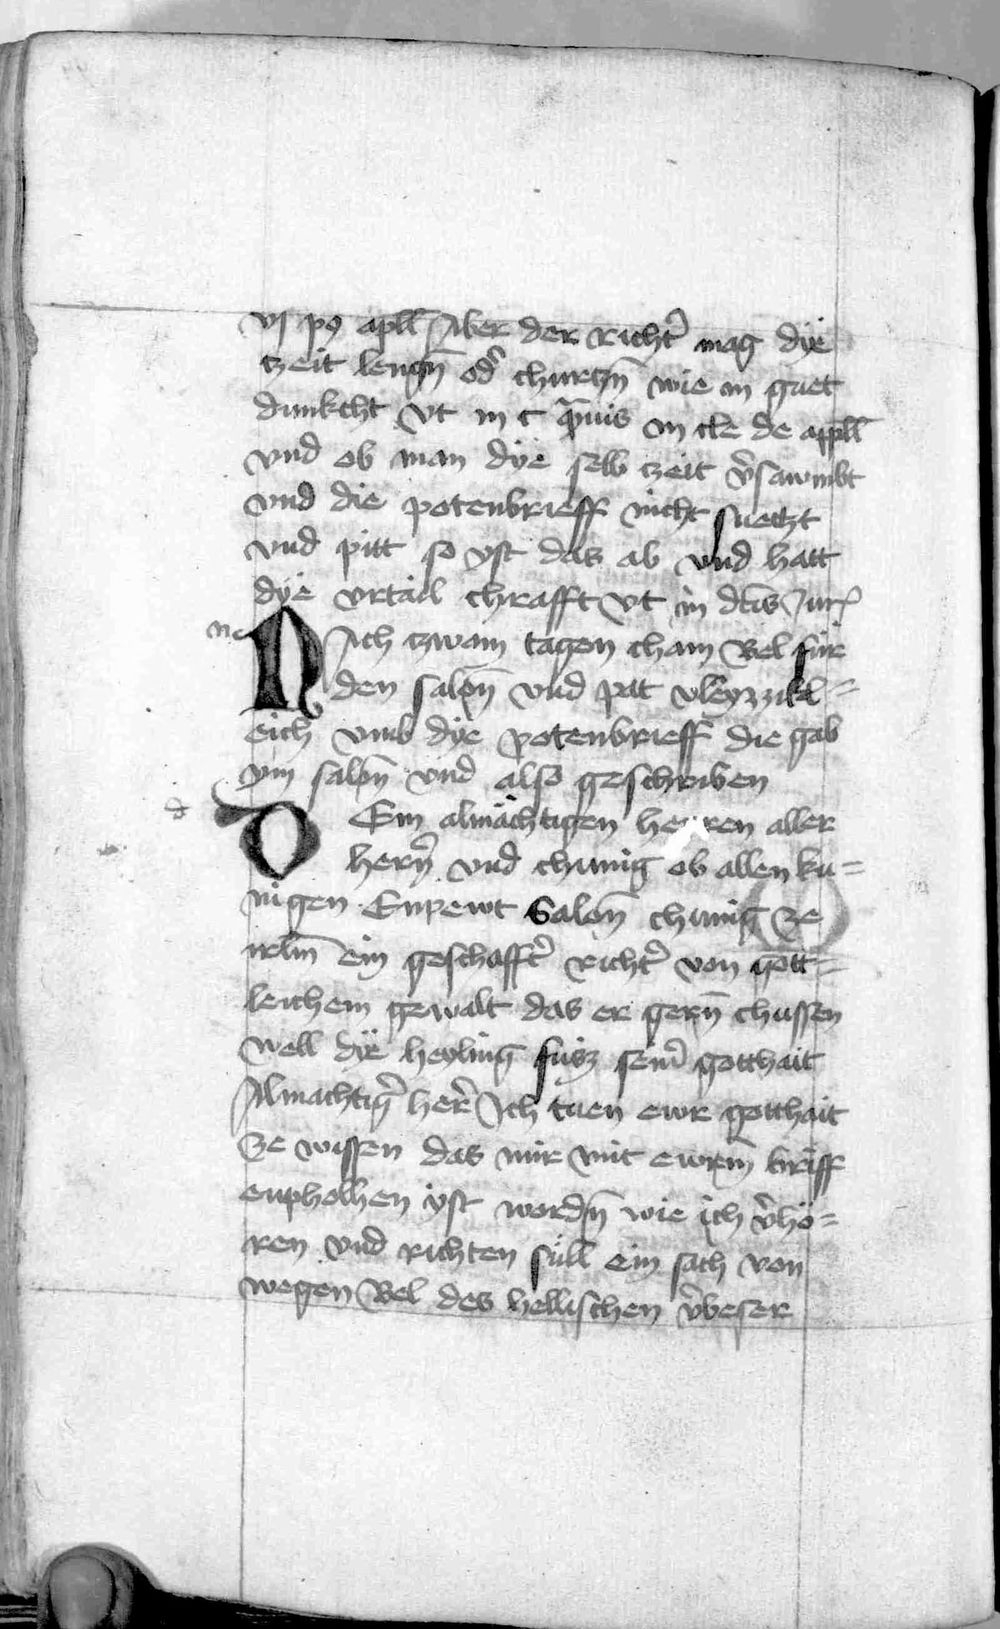 vj po apll Aber der richt̉ mag dye
czeit lengn̄ od̉ churczn̄ wie in guet
dunkcht vt in c q̄uis in cle de appll
vnd ob man dye selb czeit v̉sawmbt
vnd die potenbrieff nicht suecht
vnd pitt so yst das ab vnd hatt
dye vrtail chrafft vt in dc̄is Jur
NAch czwain tagen cham Bel für
den salon̄ vnd pat vleyzzikl=
eich vmb dye potenbrieff die gab
ym salon̄ vnd also geschriben
d
DEm almächtigen herren aller
hern̄ vnd chunig ob allen ku=
nigen Enpewt Salon̄ chunig ze
irlm̄ ein geschafft̉ richt̉ von gott=
leichem gewalt das er gern̄ chussen
well dye heylinḡ fusz sein̉ gotthait
Almachtig̉ her̉ Ich tuen ewr gotthait
ze wissen das mir mit ewrm̄ briff
enpholhen yst wordn̄ wie ich v̉hö=
ren vnd richten süll ein sach von
wegen Bel des hellischen v̉beser